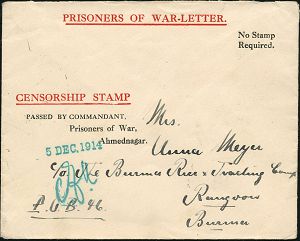 PRISONERS OF WAR-LETTER.
No Stamp
Required.
CENSORSHIP STAMP
PASSED BY COMMANDANT,
Prisoners of War,
Ahmednagar.
5 DEC. 1914
Mrs.
Anna Meyer
c/o The Burma Rice & Trading Comp
Rangoon
Burma
P.O.B. 46